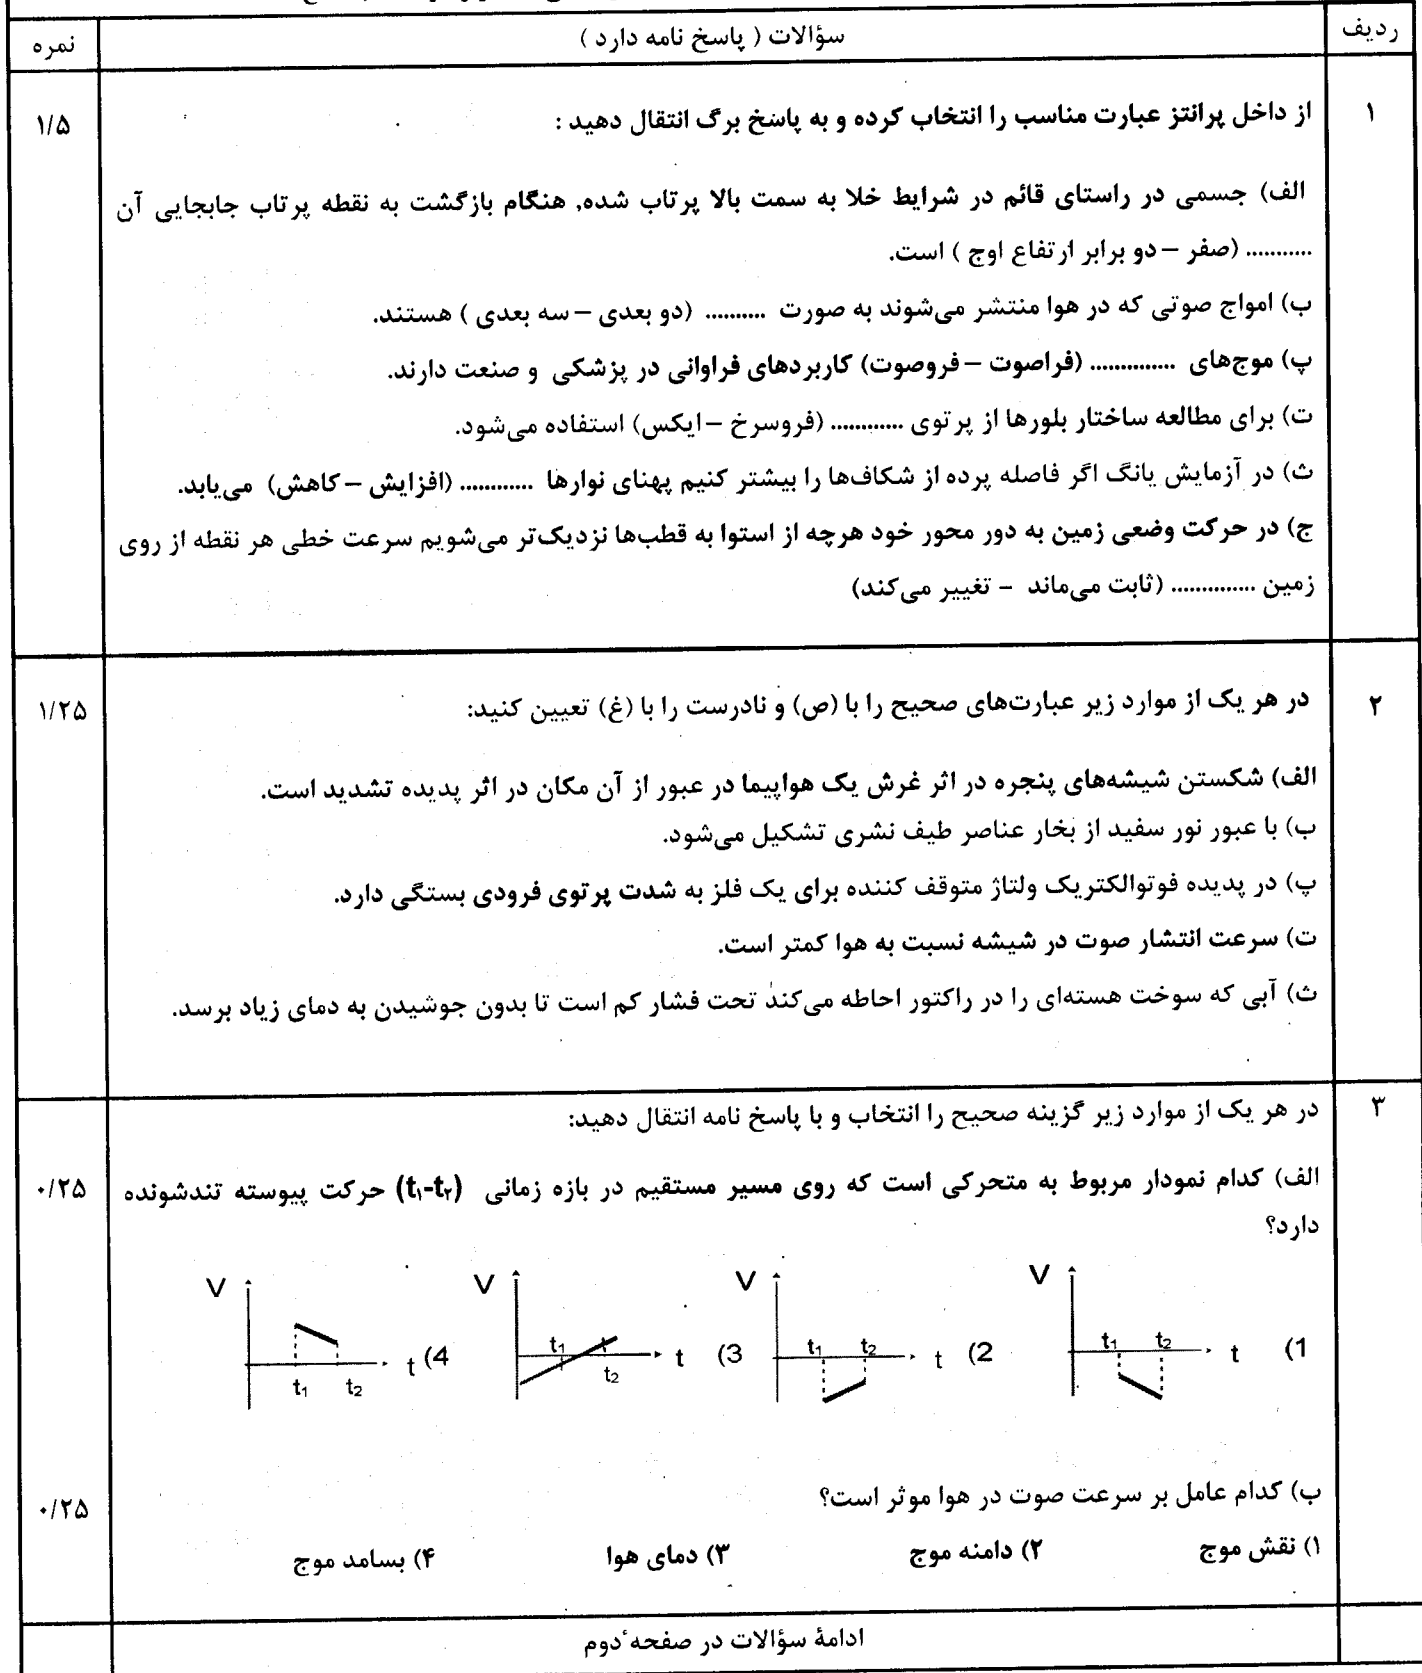 ردیف
سؤالات ( پاسخ نامه دارد )
نمره
۱
از داخل پرانتز عبارت مناسب را انتخاب کرده و به پاسخ برگ انتقال دهید :
۱/۵
الف) جسمی در راستای قائم در شرایط خلا به سمت بالا پرتاب شده, هنگام بازگشت به نقطه پرتاب جابجایی آن
........... (صفر – دو برابر ارتفاع اوج ) است.
ب) امواج صوتی که در هوا منتشر می‌شوند به صورت .......... (دو بعدی – سه بعدی ) هستند.
پ) موج‌های .............. (فراصوت – فروصوت) کاربردهای فراوانی در پزشکی و صنعت دارند.
ت) برای مطالعه ساختار بلورها از پرتوی ............ (فروسرخ – ایکس) استفاده می‌شود.
ث) در آزمایش یانگ اگر فاصله پرده از شکاف‌ها را بیشتر کنیم پهنای نوارها ............ (افزایش – کاهش) می‌یابد.
ج) در حرکت وضعی زمین به دور محور خود هرچه از استوا به قطب‌ها نزدیک‌تر می‌شویم سرعت خطی هر نقطه از روی
زمین .............. (ثابت می‌ماند - تغییر می‌کند)
۲
در هر یک از موارد زیر عبارت‌های صحیح را با (ص) و نادرست را با (غ) تعیین کنید:
۱/۲۵
الف) شکستن شیشه‌های پنجره در اثر غرش یک هواپیما در عبور از آن مکان در اثر پدیده تشدید است.
ب) با عبور نور سفید از بخار عناصر طیف نشری تشکیل می‌شود.
پ) در پدیده فوتوالکتریک ولتاژ متوقف کننده برای یک فلز به شدت پرتوی فرودی بستگی دارد.
ت) سرعت انتشار صوت در شیشه نسبت به هوا کمتر است.
ث) آبی که سوخت هسته‌ای را در راکتور احاطه می‌کند تحت فشار کم است تا بدون جوشیدن به دمای زیاد برسد.
۳
در هر یک از موارد زیر گزینه صحیح را انتخاب و با پاسخ نامه انتقال دهید:
الف) کدام نمودار مربوط به متحرکی است که روی مسیر مستقیم در بازه زمانی (t₁-t₂) حرکت پیوسته تندشونده
۰/۲۵
دارد؟
1) V t t₁ t₂
2) V t t₁ t₂
3) V t t₁ t₂
4) V t t₁ t₂
ب) کدام عامل بر سرعت صوت در هوا موثر است؟
۰/۲۵
۱) نقش موج ۲) دامنه موج ۳) دمای هوا ۴) بسامد موج
ادامهٔ سؤالات در صفحه دوم